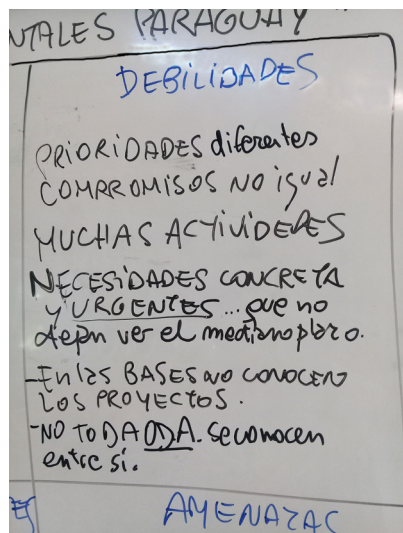 NTALES PARAGUAY
DEBILIDADES
PRIORIDADES diferentes
COMPROMISOS NO igual
MUCHAS ACTIVIDADES
NECESIDADES CONCRETA
y URGENTES... que no
dejan ver el mediano plazo.
-En las BASES NO CONOCEN
LOS PROYECTOS.
-NO TODA ODA. se conocen
entre sí.
AMENAZAS